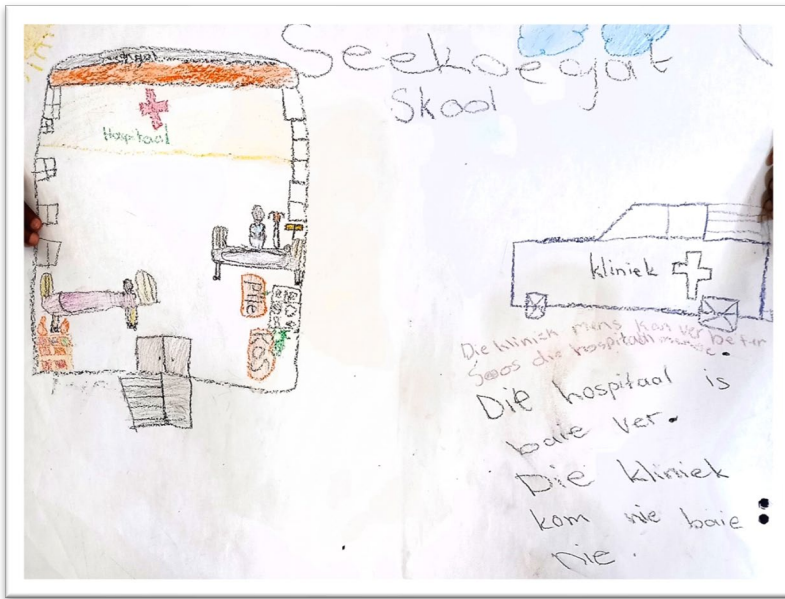 Seekoegat
Skool
Hospitaal
Pille
KOS
kliniek
Die kliniek mens kan ver be ter
Soos die hospitaal mense.
Die hospitaal is
baie ver.
Die kliniek
kom nie baie
nie.